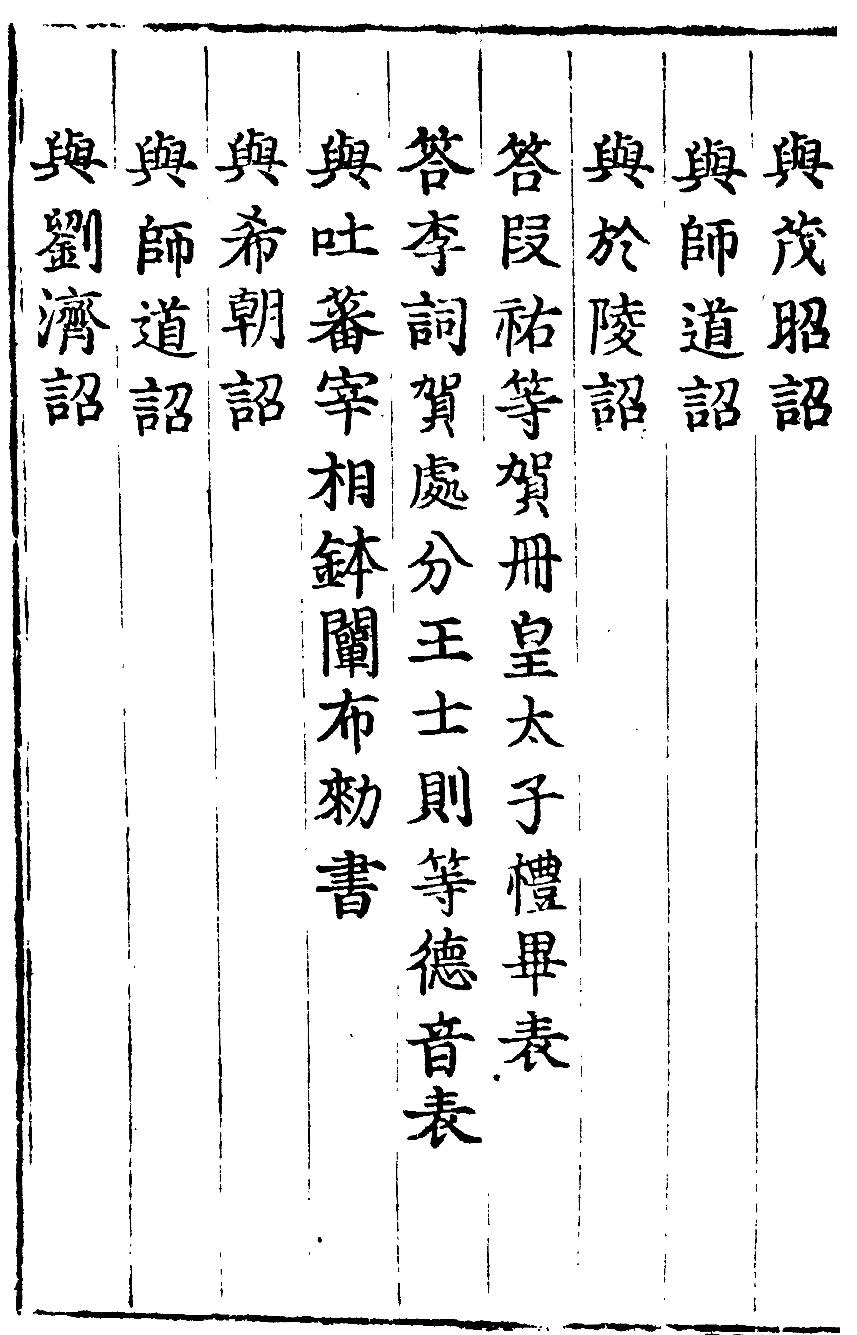 與茂昭詔
與師道詔
與於陵詔
答段祐等賀冊皇太子禮畢表
答李詞賀處分王士則等德音表
與吐蕃宰相鉢闡布勑書
與希朝詔
與師道詔
與劉濟詔